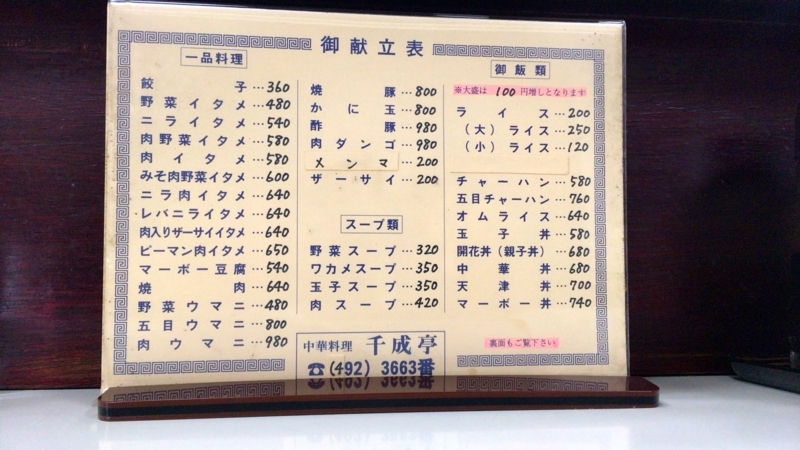 御献立表
一品料理
餃子…360
野菜イタメ…480
ニライタメ…540
肉野菜イタメ…580
肉イタメ…580
みそ肉野菜イタメ…600
ニラ肉イタメ…640
レバニライタメ…640
肉入りザーサイイタメ…640
ピーマン肉イタメ…650
マーボー豆腐…540
焼肉…640
野菜ウマニ…480
五目ウマニ…800
肉ウマニ…980
焼豚…800
かに玉…800
酢豚…980
肉ダンゴ…980
メンマ…200
ザーサイ…200
スープ類
野菜スープ…320
ワカメスープ…350
玉子スープ…350
肉スープ…420
中華料理 千成亭
☎(492)3663番
御飯類
※大盛は100円増しとなります
ライス…200
(大)ライス…250
(小)ライス…120
チャーハン…580
五目チャーハン…760
オムライス…640
玉子丼…580
開花丼(親子丼)…680
中華丼…680
天津丼…700
マーボー丼…740
裏面もご覧下さい